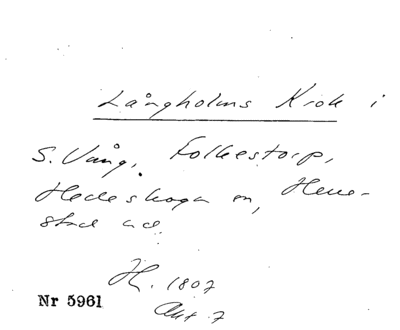 Långholms Krok i
S. Vång, Folkestorp,
Hedeskoga m, Hene-
stad
H. 1807
Akt 7
Nr 5961